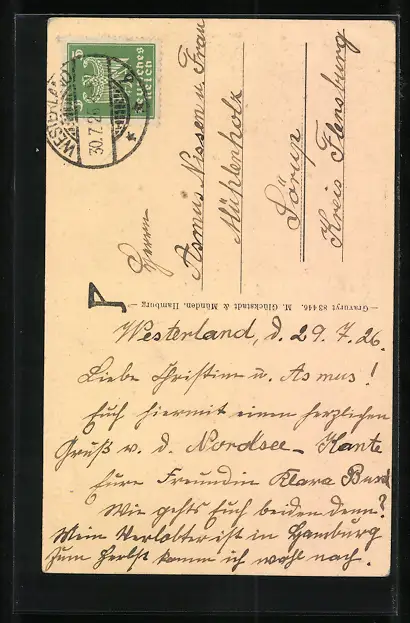 WESTERLAND
30.7.2
Deutsches
Reich
5
Herrn
Asmus Nissen u. Frau
Mühlenholz
Sörup
Kreis Flensburg
— Gravuryt 83446. M. Glückstadt & Münden, Hamburg —
Westerland, d. 29.7.26.
Liebe Christine u. Asmus!
Euch hiermit einen herzlichen
Gruß v. d. Nordsee-Kante
Eure Freundin Klara
Wie gehts Euch beiden denn?
Mein Verlobter ist in Hamburg
zum Herbst komm ich wohl nach.